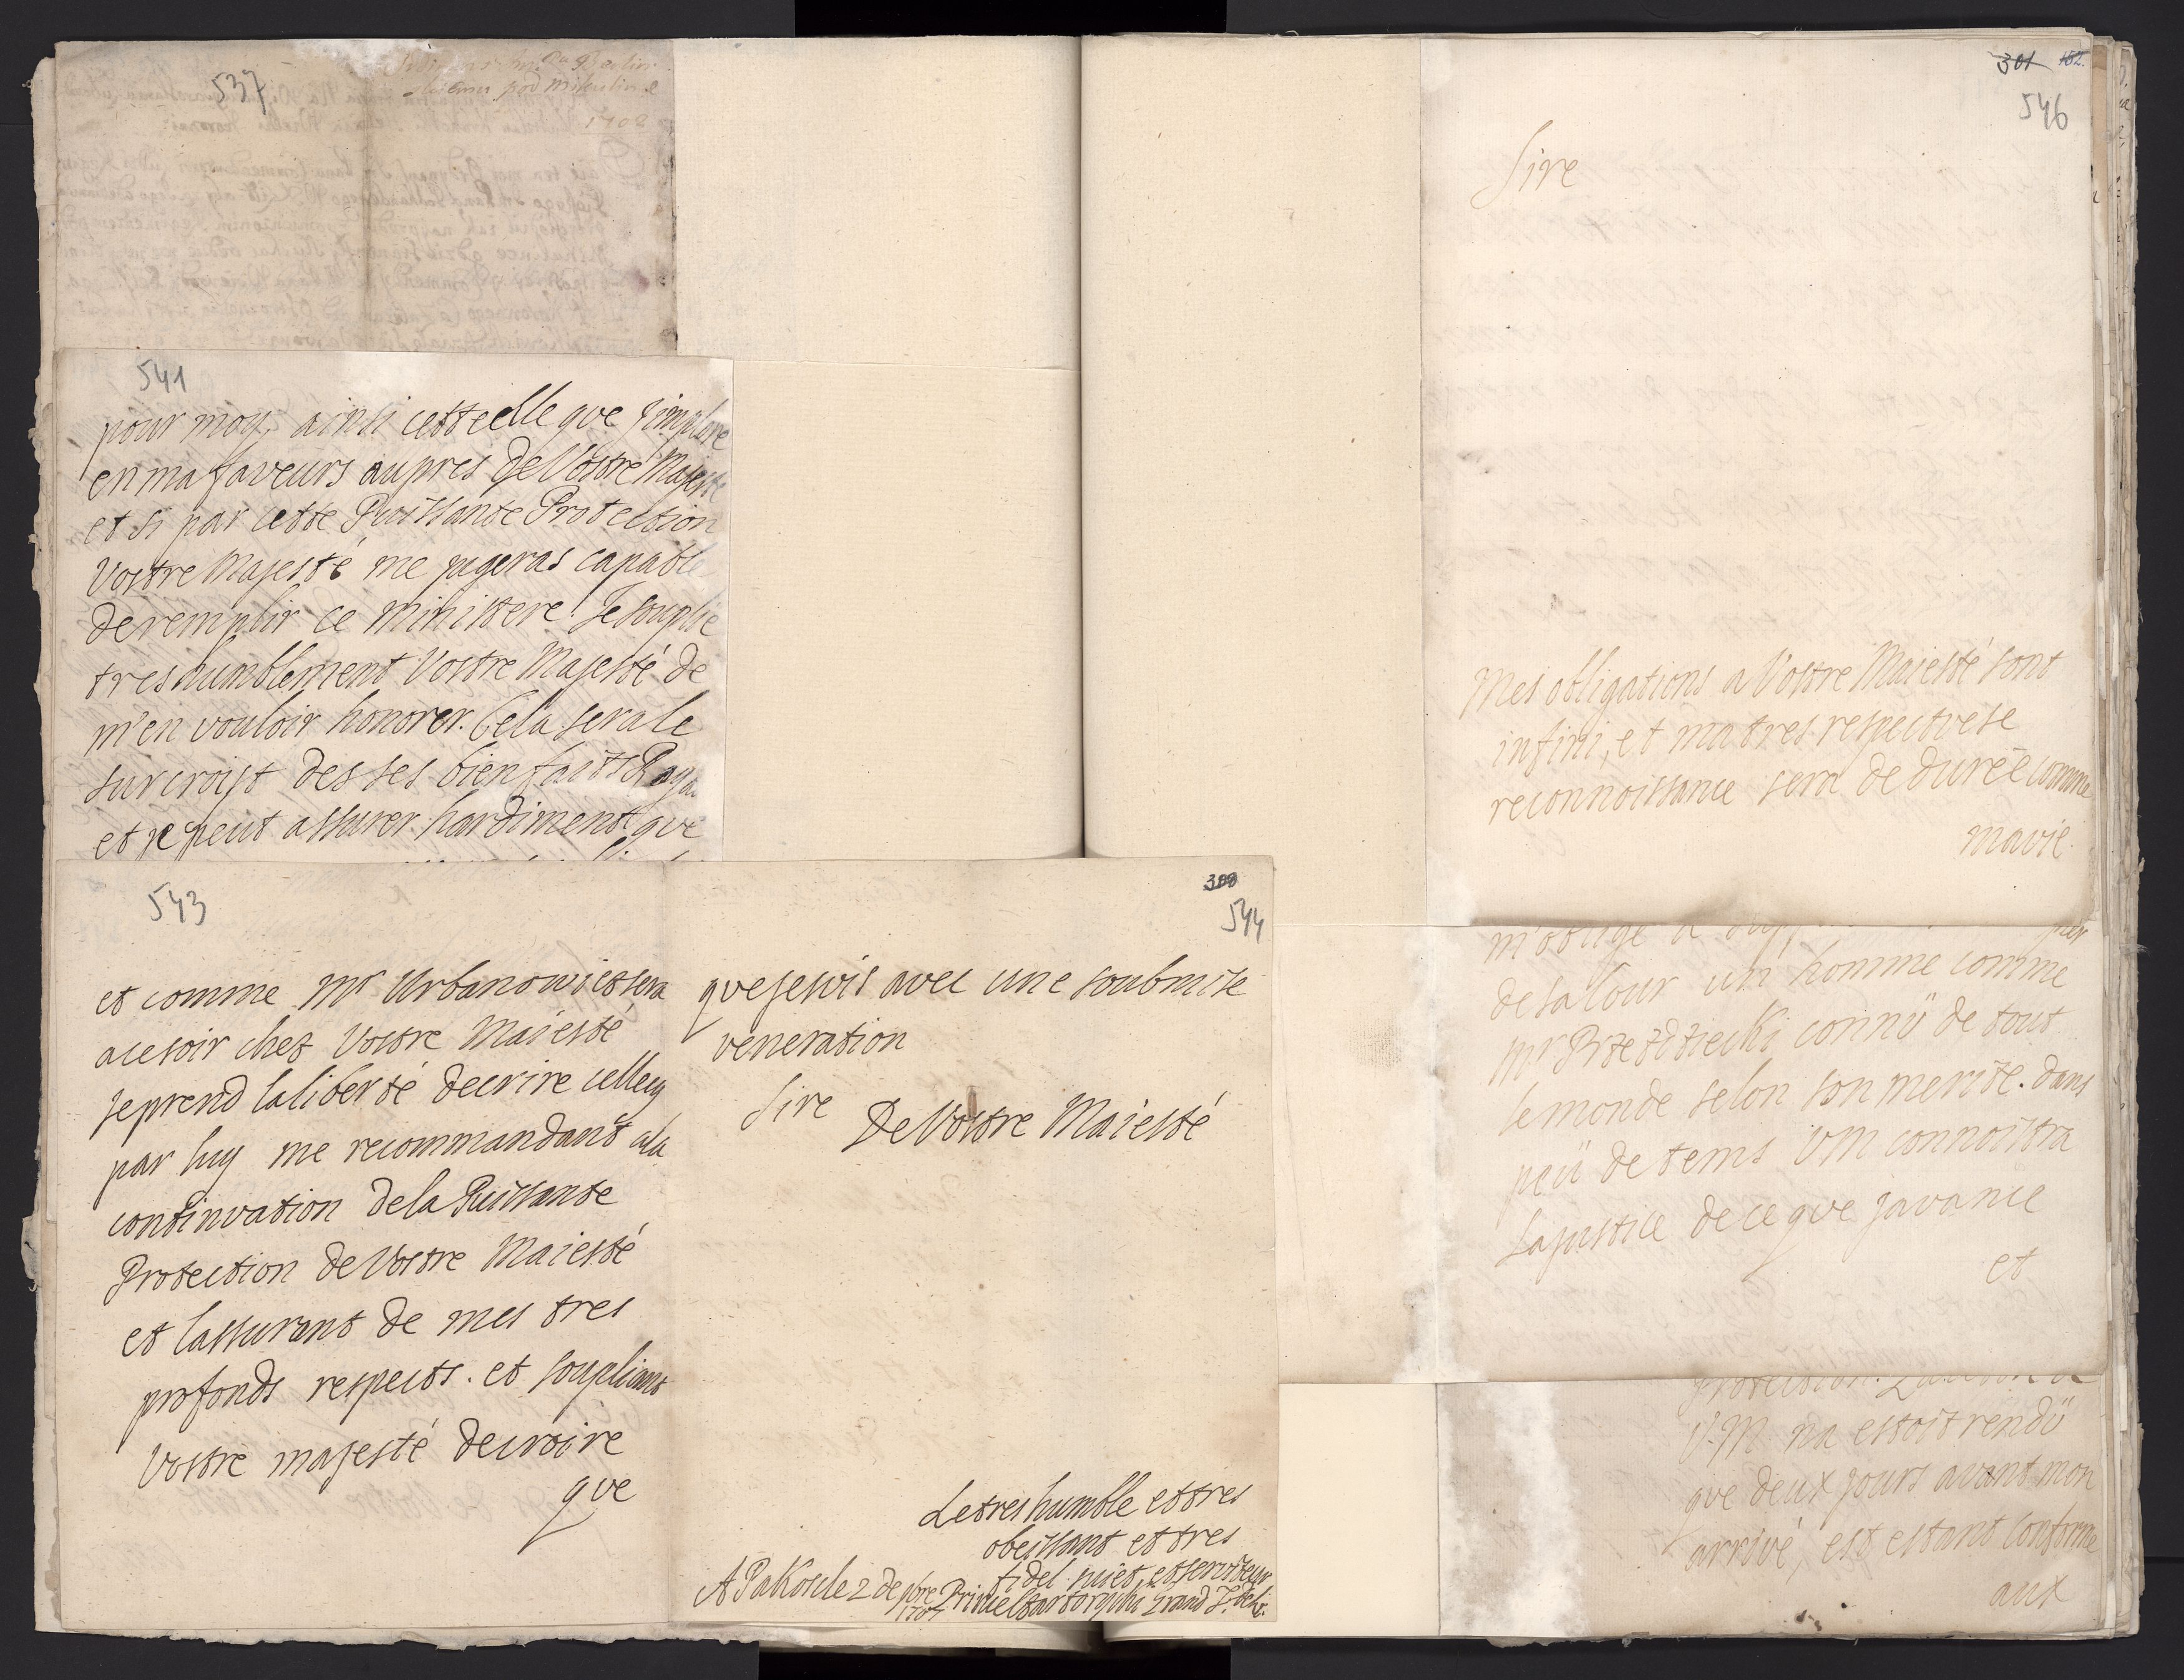 537
1702
541
pour moy, ainsi cesteelle que jimplore
enma faveurs aupres De Vostre Majesté
et si par cette Puissante Protection
Vostre Majesté me jugeras capable
de remplir ce ministere. Je souplie
tres humblement Vostre Majesté de
m'en vouloir honorer. Cela sera le
surcroist des ses bienfaits
et je peut assurer hardiment que
543
et comme Mr Urbanowiessera
acesoir chez Vostre Maiesté
jeprend laliberté decrire celley
par luy me recommandant ala
continuation dela Puissante
Protection de Vostre Maiesté
et lassurant de mes tres
profonds respects. et souplians
Vostre majesté decroire
que
300
544
quejesuis avec une soubmise
veneration
Sire De Vostre Maiesté
Le tres humble et tres
obeissant et tres
fidel sujet et serviteur
A Pakosc le 2 de 9bre 1707 Prince Czartoryski Grand
301 162.
546
Sire
Mes obligations a Vostre Maiesté sont
infini, et ma tres respectuese
reconnoissance sera de durée comme
mavie.
m'oblige a
de sa Cour un homme comme
Mr Przezdziecki connü de tout
le monde selon son merite. dans
peü de tems VM connoistra
la justice de ce que javance
et
V.M. na estoit rendü
que deux jours avant mon
arrivé, est estant conforme
aux